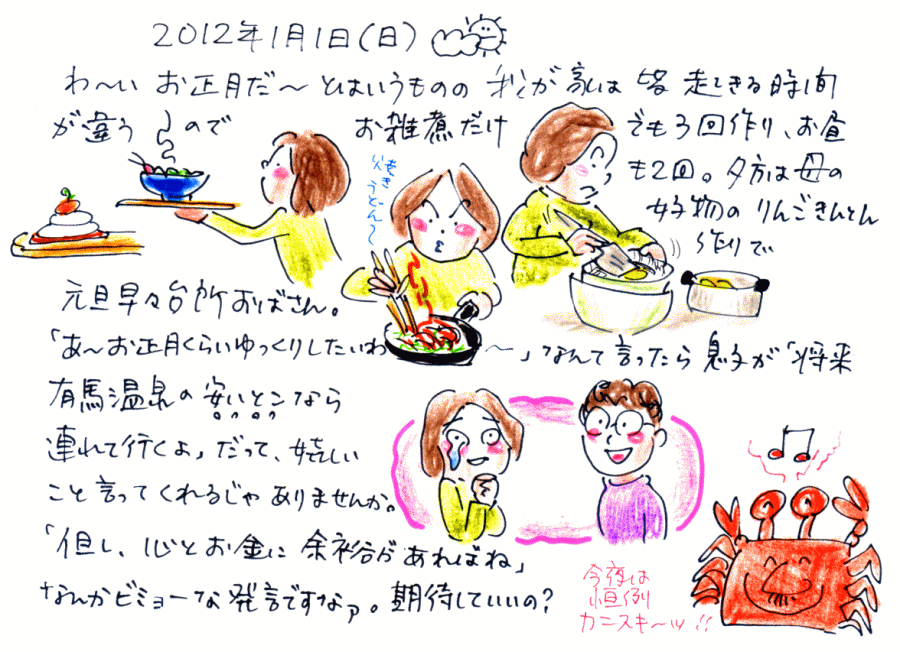 2012年1月1日(日)
わ〜い お正月だ〜 とはいうものの 我が家は 皆 起きてきる時間
が違う ので お雑煮だけ でも3回作り、お昼
も2回。夕方は母の
好物の りんごきんとん
作りで
焼き
うどん〜
元旦早々台所おばさん。
「あ〜お正月くらいゆっくりしたいわ 〜」なんて言ったら 息子が「将来
有馬温泉の 安いとこなら
連れて行くよ」だって、嬉しい
こと言ってくれるじゃ ありませんか。
「但し、心とお金に 余裕があればね」
なんかビミョーな 発言ですなァ。期待していいの?
今夜は
恒例
カニスキ〜ッ!!